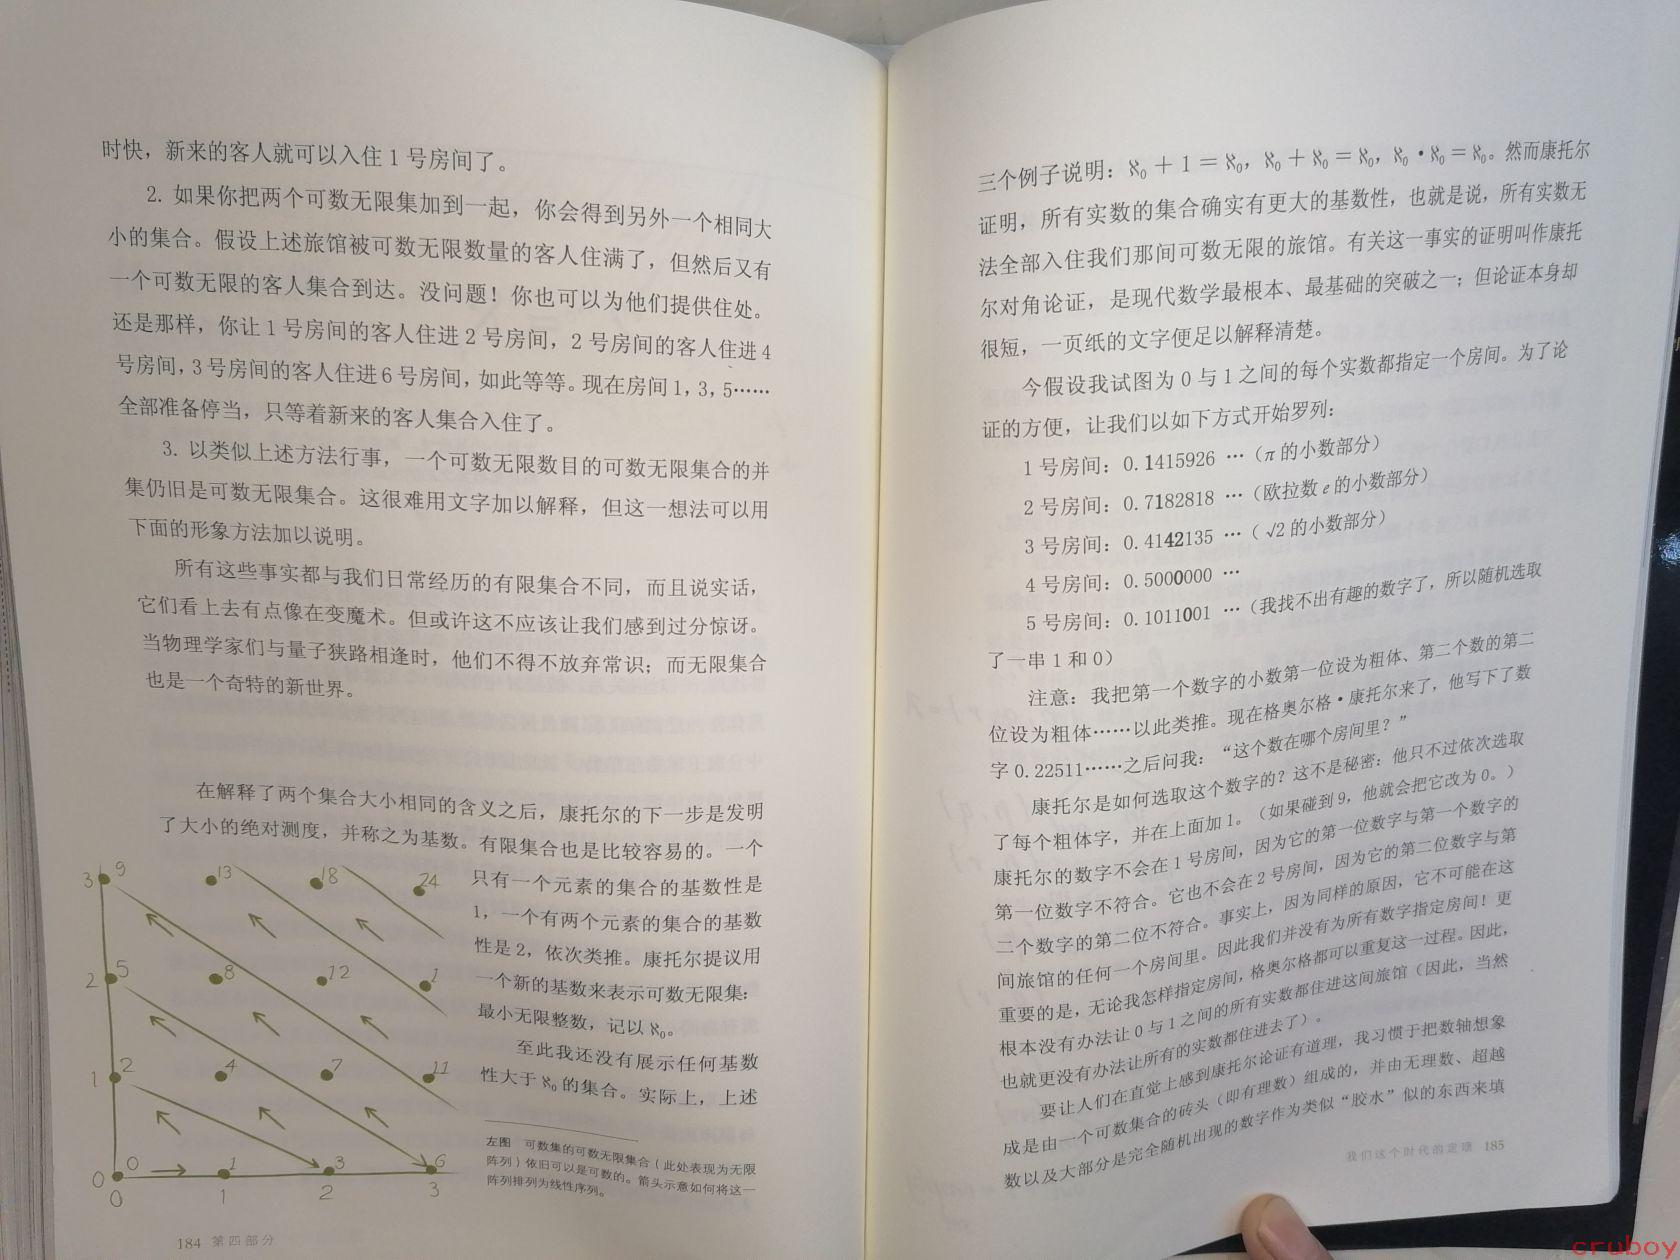 时快，新来的客人就可以入住1号房间了。
2. 如果你把两个可数无限集加到一起，你会得到另外一个相同大
小的集合。假设上述旅馆被可数无限数量的客人住满了，但然后又有
一个可数无限的客人集合到达。没问题！你也可以为他们提供住处。
还是那样，你让1号房间的客人住进2号房间，2号房间的客人住进4
号房间，3号房间的客人住进6号房间，如此等等。现在房间1，3，5……
全部准备停当，只等着新来的客人集合入住了。
3. 以类似上述方法行事，一个可数无限数目的可数无限集合的并
集仍旧是可数无限集合。这很难用文字加以解释，但这一想法可以用
下面的形象方法加以说明。
所有这些事实都与我们日常经历的有限集合不同，而且说实话，
它们看上去有点像在变魔术。但或许这不应该让我们感到过分惊讶。
当物理学家们与量子狭路相逢时，他们不得不放弃常识；而无限集合
也是一个奇特的新世界。
在解释了两个集合大小相同的含义之后，康托尔的下一步是发明
了大小的绝对测度，并称之为基数。有限集合也是比较容易的。一个
只有一个元素的集合的基数性是
1，一个有两个元素的集合的基数
性是2，依次类推。康托尔提议用
一个新的基数来表示可数无限集：
最小无限整数，记以ℵ₀。
至此我还没有展示任何基数
性大于ℵ₀的集合。实际上，上述
3 9 13 18 24
2 5 8 12 1
1 2 4 7 11
0 0 1 3 6
0 1 2 3
左图 可数集的可数无限集合（此处表现为无限
阵列）依旧可以是可数的。箭头示意如何将这一
阵列排列为线性序列。
184 第四部分
三个例子说明：ℵ₀＋1＝ℵ₀，ℵ₀＋ℵ₀＝ℵ₀，ℵ₀·ℵ₀＝ℵ₀。然而康托尔
证明，所有实数的集合确实有更大的基数性，也就是说，所有实数无
法全部入住我们那间可数无限的旅馆。有关这一事实的证明叫作康托
尔对角论证，是现代数学最根本、最基础的突破之一；但论证本身却
很短，一页纸的文字便足以解释清楚。
今假设我试图为0与1之间的每个实数都指定一个房间。为了论
证的方便，让我们以如下方式开始罗列：
1号房间：0.1415926 …（π的小数部分）
2号房间：0.7182818 …（欧拉数e的小数部分）
3号房间：0.4142135 …（√2的小数部分）
4号房间：0.5000000 …
5号房间：0.1011001 …（我找不出有趣的数字了，所以随机选取
了一串1和0）
注意：我把第一个数字的小数第一位设为粗体、第二个数的第二
位设为粗体……以此类推。现在格奥尔格·康托尔来了，他写下了数
字0.22511……之后问我：“这个数在哪个房间里？”
康托尔是如何选取这个数字的？这不是秘密：他只不过依次选取
了每个粗体字，并在上面加1。（如果碰到9，他就会把它改为0。）
康托尔的数字不会在1号房间，因为它的第一位数字与第一个数字的
第一位数字不符合。它也不会在2号房间，因为它的第二位数字与第
二个数字的第二位不符合。事实上，因为同样的原因，它不可能在这
间旅馆的任何一个房间里。因此我们并没有为所有数字指定房间！更
重要的是，无论我怎样指定房间，格奥尔格都可以重复这一过程。因此，
根本没有办法让0与1之间的所有实数都住进这间旅馆（因此，当然
也就更没有办法让所有的实数都住进去了）。
要让人们在直觉上感到康托尔论证有道理，我习惯于把数轴想象
成是由一个可数集合的砖头（即有理数）组成的，并由无理数、超越
数以及大部分是完全随机出现的数字作为类似“胶水”似的东西来填
我们这个时代的定理 185
cruboy